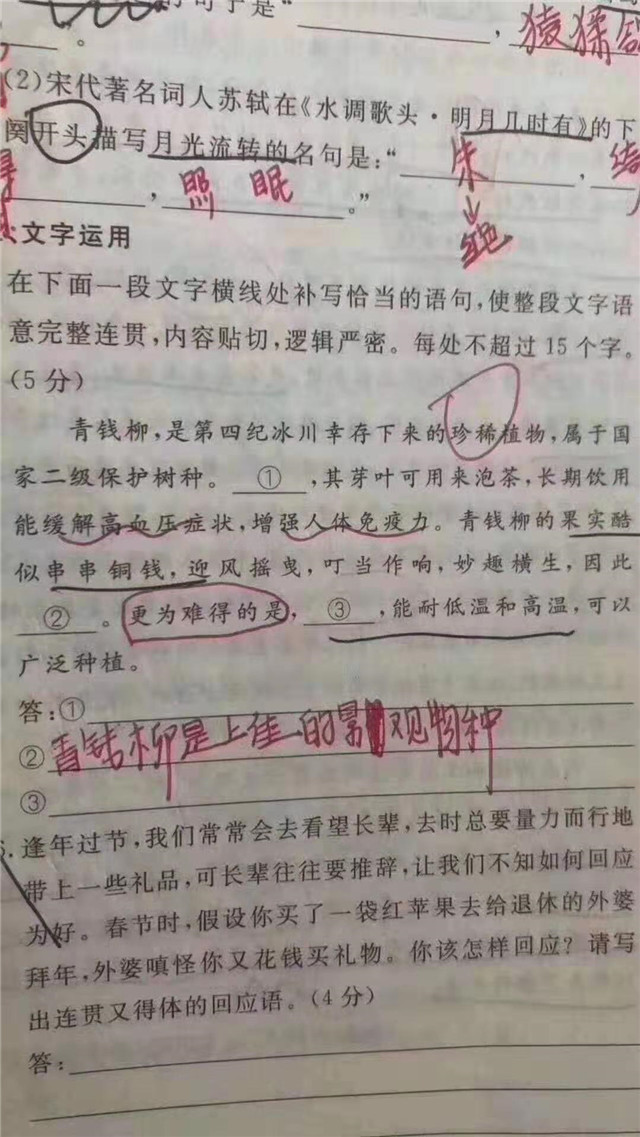 句子是"
，猿猱
。"
(2)宋代著名词人苏轼在《水调歌头·明月几时有》的下
阕开头描写月光流转的名句是："朱，
↓
绝
，照 眠。"
文字运用
在下面一段文字横线处补写恰当的语句，使整段文字语
意完整连贯，内容贴切，逻辑严密。每处不超过 15 个字。
(5 分)
青钱柳，是第四纪冰川幸存下来的珍稀植物，属于国
家二级保护树种。①，其芽叶可用来泡茶，长期饮用
能缓解高血压症状，增强人体免疫力。青钱柳的果实酷
似串串铜钱，迎风摇曳，叮当作响，妙趣横生，因此
②。更为难得的是，③，能耐低温和高温，可以
广泛种植。
答：①
②青钱柳是上佳的景观物种
③
逢年过节，我们常常会去看望长辈，去时总要量力而行地
带上一些礼品，可长辈往往要推辞，让我们不知如何回应
为好。春节时，假设你买了一袋红苹果去给退休的外婆
拜年，外婆嗔怪你又花钱买礼物。你该怎样回应？请写
出连贯又得体的回应语。(4 分)
答：